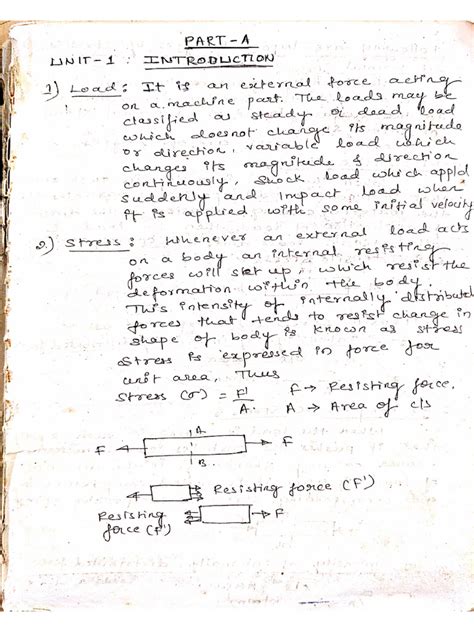 PART-A
UNIT-1 : INTRODUCTION
1) Load : It is an external force acting
on a machine part. The loads may be
classified as steady or dead load
which doesnot change its magnitude
or direction, variable load which
changes its magnitude & direction
continuously, Shock load which appld
suddenly and Impact load when
it is applied with some initial velocity
2) Stress : Whenever an external load acts
on a body an internal resisting
forces will set up, which resist the
deformation within the body.
This intensity of internally distributed
forces that tends to resist change in
shape of body is known as stress
Stress is expressed in force for
unit area, Thus
Stress (σ) = F'/A. F → Resisting force.
A → Area of c/s
A
F F
B
Resisting force (F')
Resisting F
force (F')